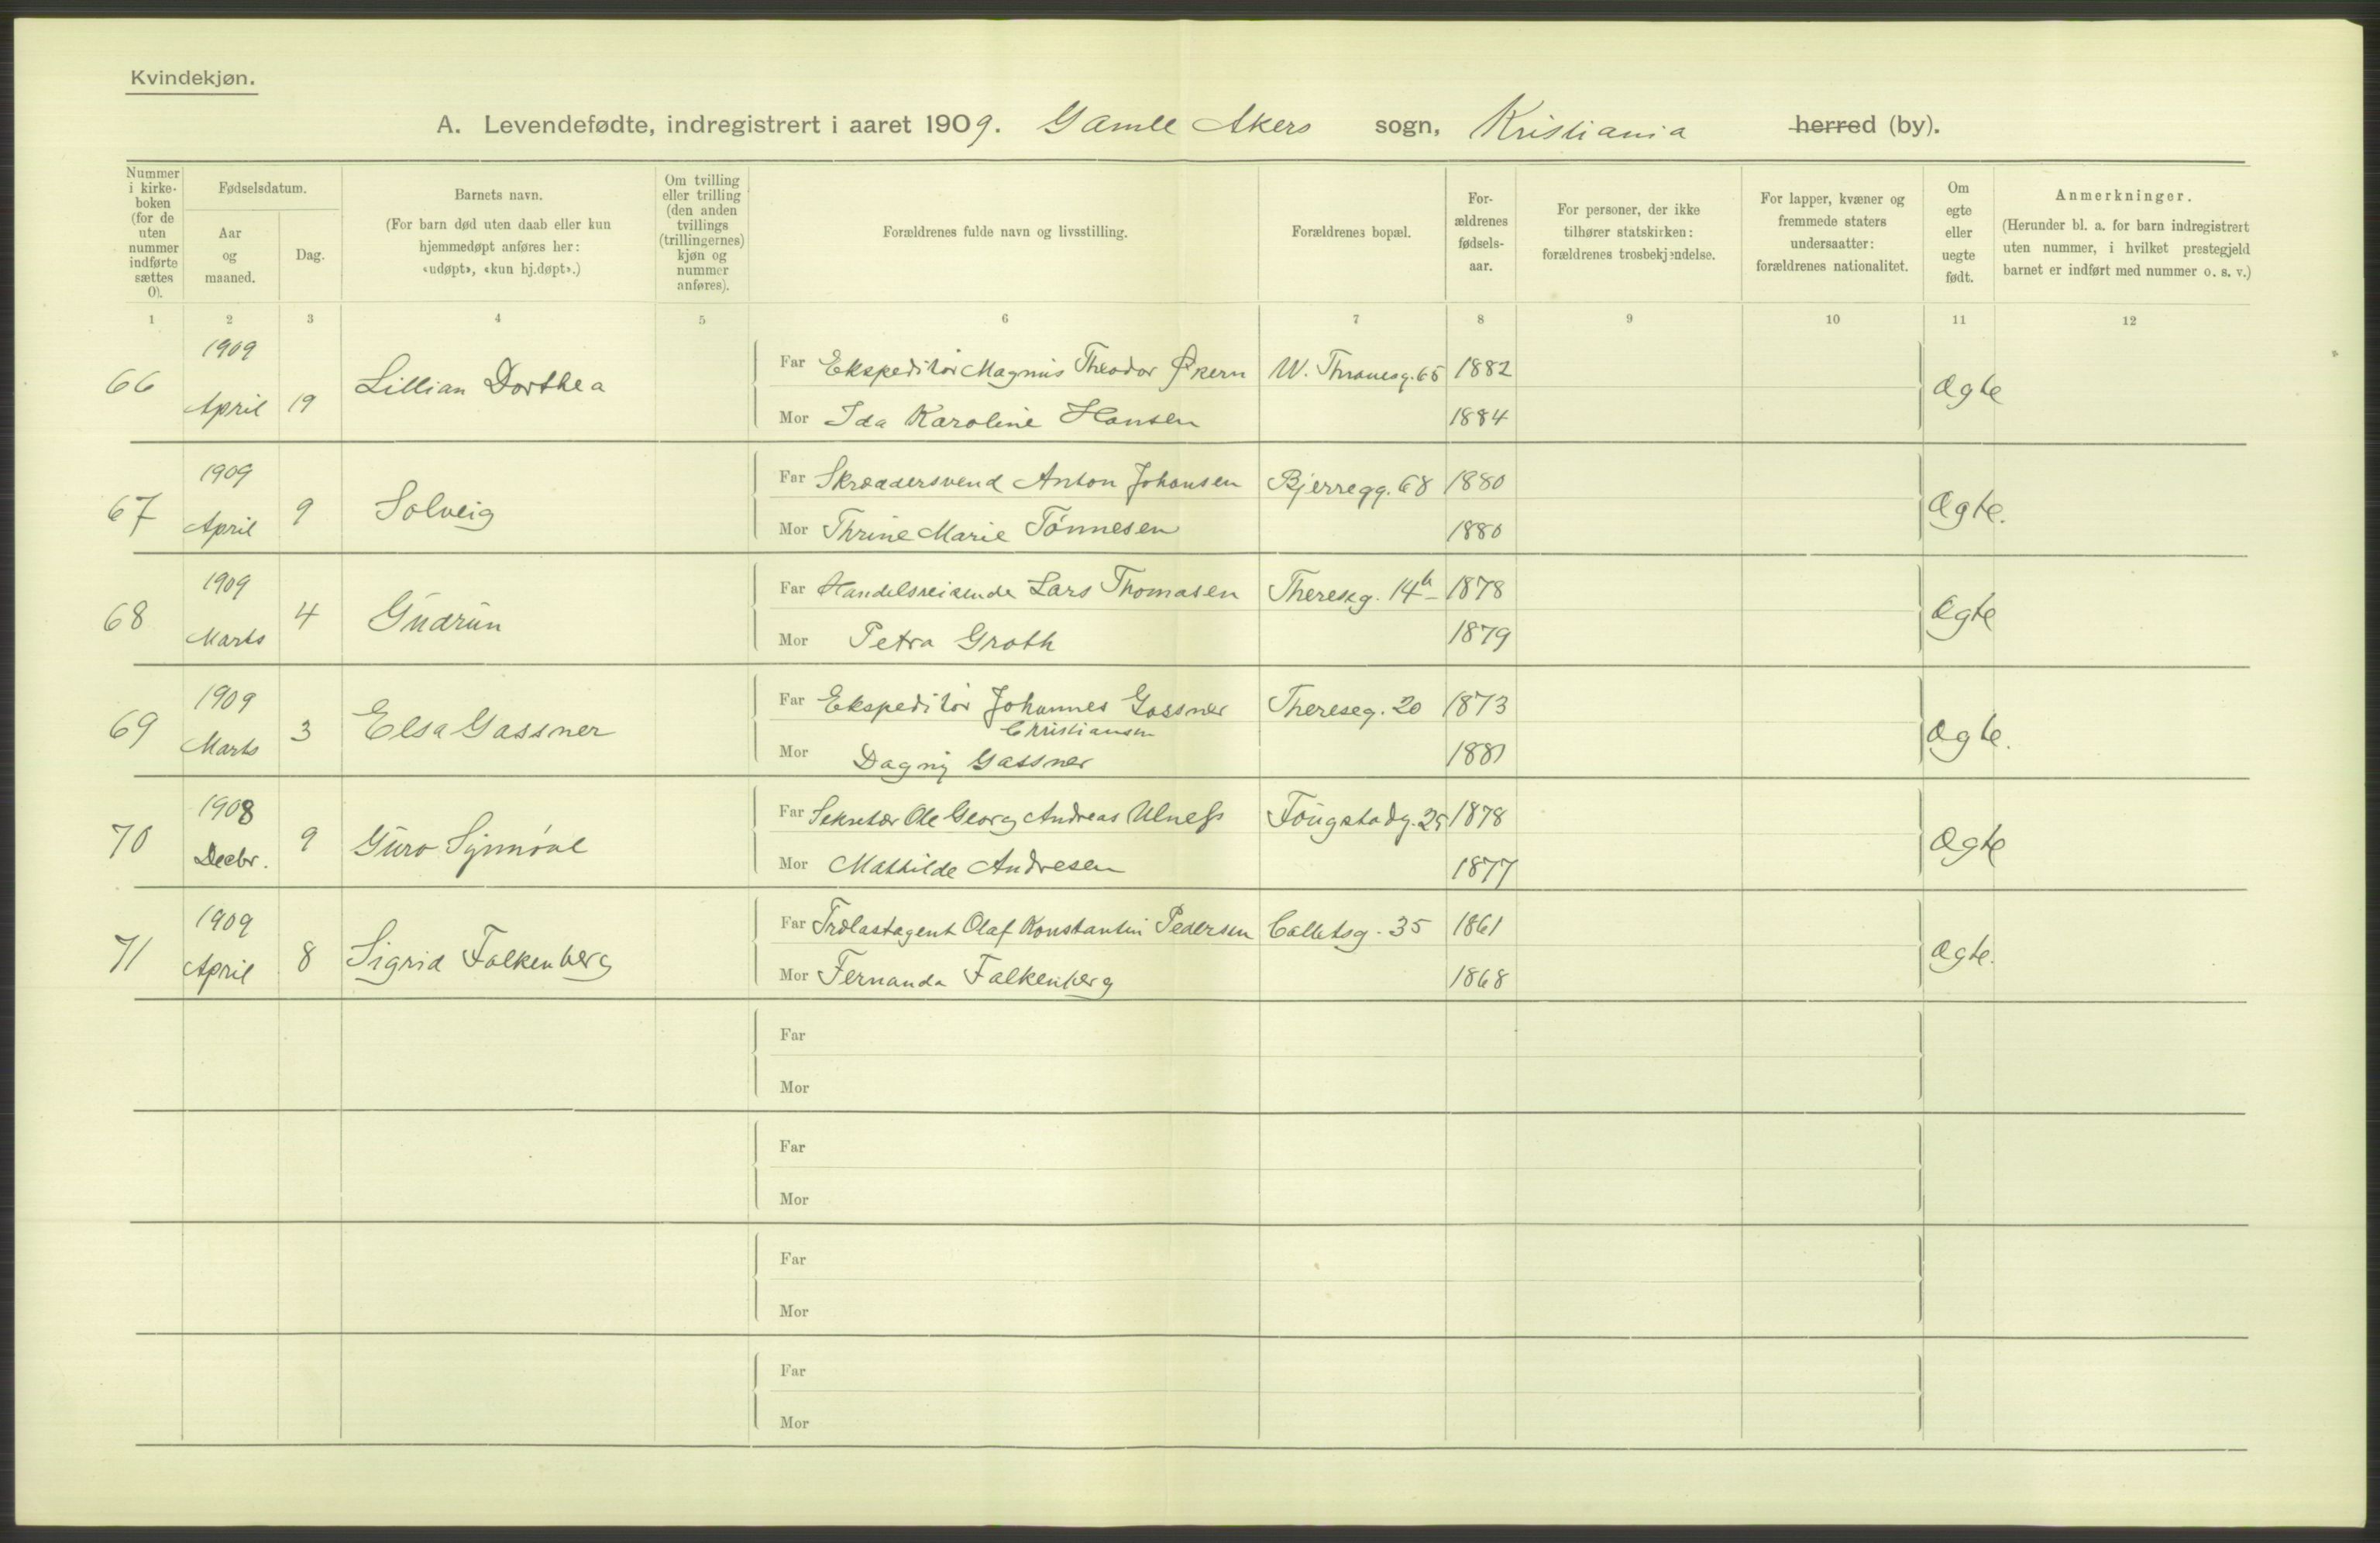 Kvindekjøn.
A. Levendefødte, indregistrert i aaret 1909. Gamle Akers sogn, Kristiania herred (by).
Nummer i kirkeboken (for de uten nummer indførte sættes 0).
Fødselsdatum.
Aar og maaned.
Dag.
Barnets navn.
(For barn død uten daab eller kun hjemmedøpt anføres her: «udøpt», «kun hj.døpt».)
Om tvilling eller trilling (den anden tvillings (trillingernes) kjøn og nummer anføres).
Forældrenes fulde navn og livsstilling.
Forældrenes bopæl.
Forældrenes fødselsaar.
For personer, der ikke tilhører statskirken: forældrenes trosbekjendelse.
For lapper, kvæner og fremmede staters undersaatter: forældrenes nationalitet.
Om egte eller uegte født.
Anmerkninger.
(Herunder bl. a. for barn indregistrert uten nummer, i hvilket prestegjeld barnet er indført med nummer o. s. v.)
1 2 3 4 5 6 7 8 9 10 11 12
66 1909 April 19 Lillian Dorthea Ægte
Far Ekspeditør Magnus Theodor Økern W. Thranesg. 65 1882
Mor Ida Karoline Hansen 1884
67 1909 April 9 Solveig Ægte.
Far Skræddersvend Anton Johansen Bjerregg. 68 1880
Mor Thrine Marie Tønnesen 1880
68 1909 Marts 4 Gudrun Ægte
Far Handelsreisende Lars Thomasen Theresesg. 14b 1878
Mor Petra Groth 1879
69 1909 Marts 3 Elsa Gassner Ægte.
Far Ekspeditør Johannes Gassner Thereseg. 20 1873
Christiansen
Mor Dagny Gassner 1881
70 1908 Decbr. 9 Guro Synnøve Ægte
Far Sekretær Ole Georg Andreas Ulness Fougstadg. 25 1878
Mor Mathilde Andresen 1877
71 1909 April 8 Sigrid Falkenberg Ægte.
Far Trælastagent Olaf Konstantin Pedersen Calletsg. 35 1861
Mor Fernanda Falkenberg 1868
Far
Mor
Far
Mor
Far
Mor
Far
Mor